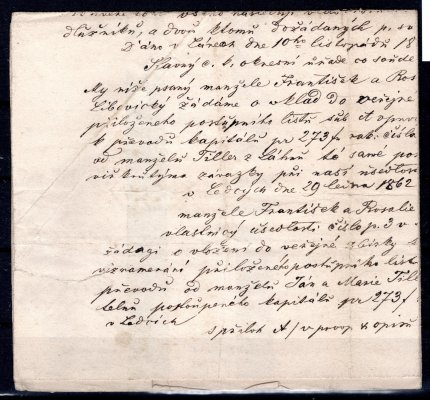 dlužníků, a dvou k tomu dožádaných p. sv
Dáno v Lánech dne 10ho listopadu 18
Slavný c. k. okresní úřade co soude
My níže psaný manžele František a Ros
Libovický žádáme o vklad do veřejné
přiloženého postupního listu
k převodu kapitálu pr 273 f rak. čísla
od manželů Tiller z Láhn té samé pos
závazky při naší usedlosti
v Ledcych dne 29 ledna 1862
manžele František a Rosalie
vlastnicy usedlosti číslo p. 3 v
žádagi o vložení do veřejné zbirky s
vyznamenání přiloženého postupního list
převodu od manželů Jan a Marie Till
postoupeného kapitálu pr 273 f
v Ledcích
s příloh A / v prvop & opisu